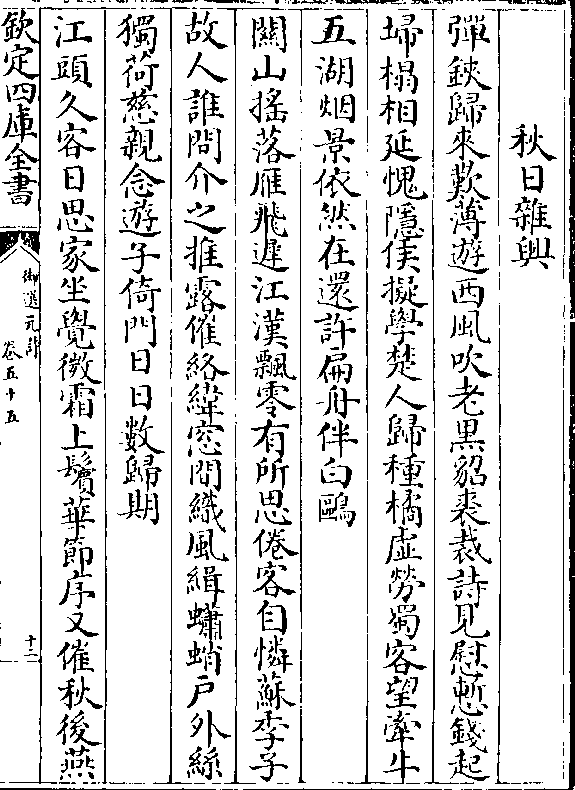 秋日雜興
彈鋏歸來歎薄遊西風吹老黒貂裘裁詩見慰慙錢起
埽榻相延愧隠侯擬學楚人歸種橘虚勞蜀客望牽牛
五湖烟景依然在還許扁舟伴白鷗
闗山揺落雁飛遲江漢飄零有所思倦客自憐蘇季子
故人誰問介之推露催絡緯窓間織風緝蠨蛸戸外絲
獨荷慈親念遊子倚門日日數歸期
江頭久客日思家坐覺微霜上鬢華節序又催秋後燕
欽定四庫全書
御選元詩
卷五十五
十二